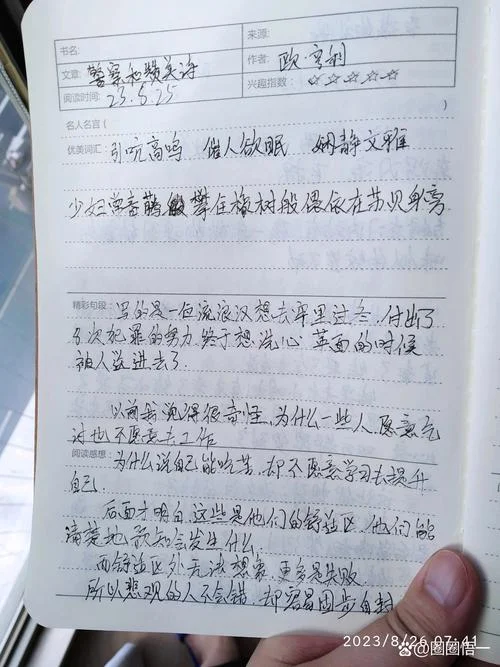 书名:
来源:
文章: 警察和赞美诗
作者: 欧·亨利
阅读时间: 23.8.25
兴趣指数: ☆☆☆☆☆
名人名言(
)
优美词汇: 引吭高鸣 催人欲眠 娴静文雅
少妇常春藤攀住橡树般偎依在苏贝身旁
精彩句段: 写的是一位流浪汉想去牢里过冬,付出了
6次犯罪的努力,终于想洗心革面的时候
被人送进去了.
以前我觉得很奇怪,为什么一些人愿意乞
讨也不愿意去工作
阅读感想: 为什么说自己能吃苦,却不愿意学习去提升
自己.
后面才明白,这些是他们的舒适区,他们能
清楚地预知会发生什么
而舒适区外无法想象,更多是失败.
所以悲观的人不会错,却容易固步自封
2023/8/26 07:41
头条 @圈圈悟一